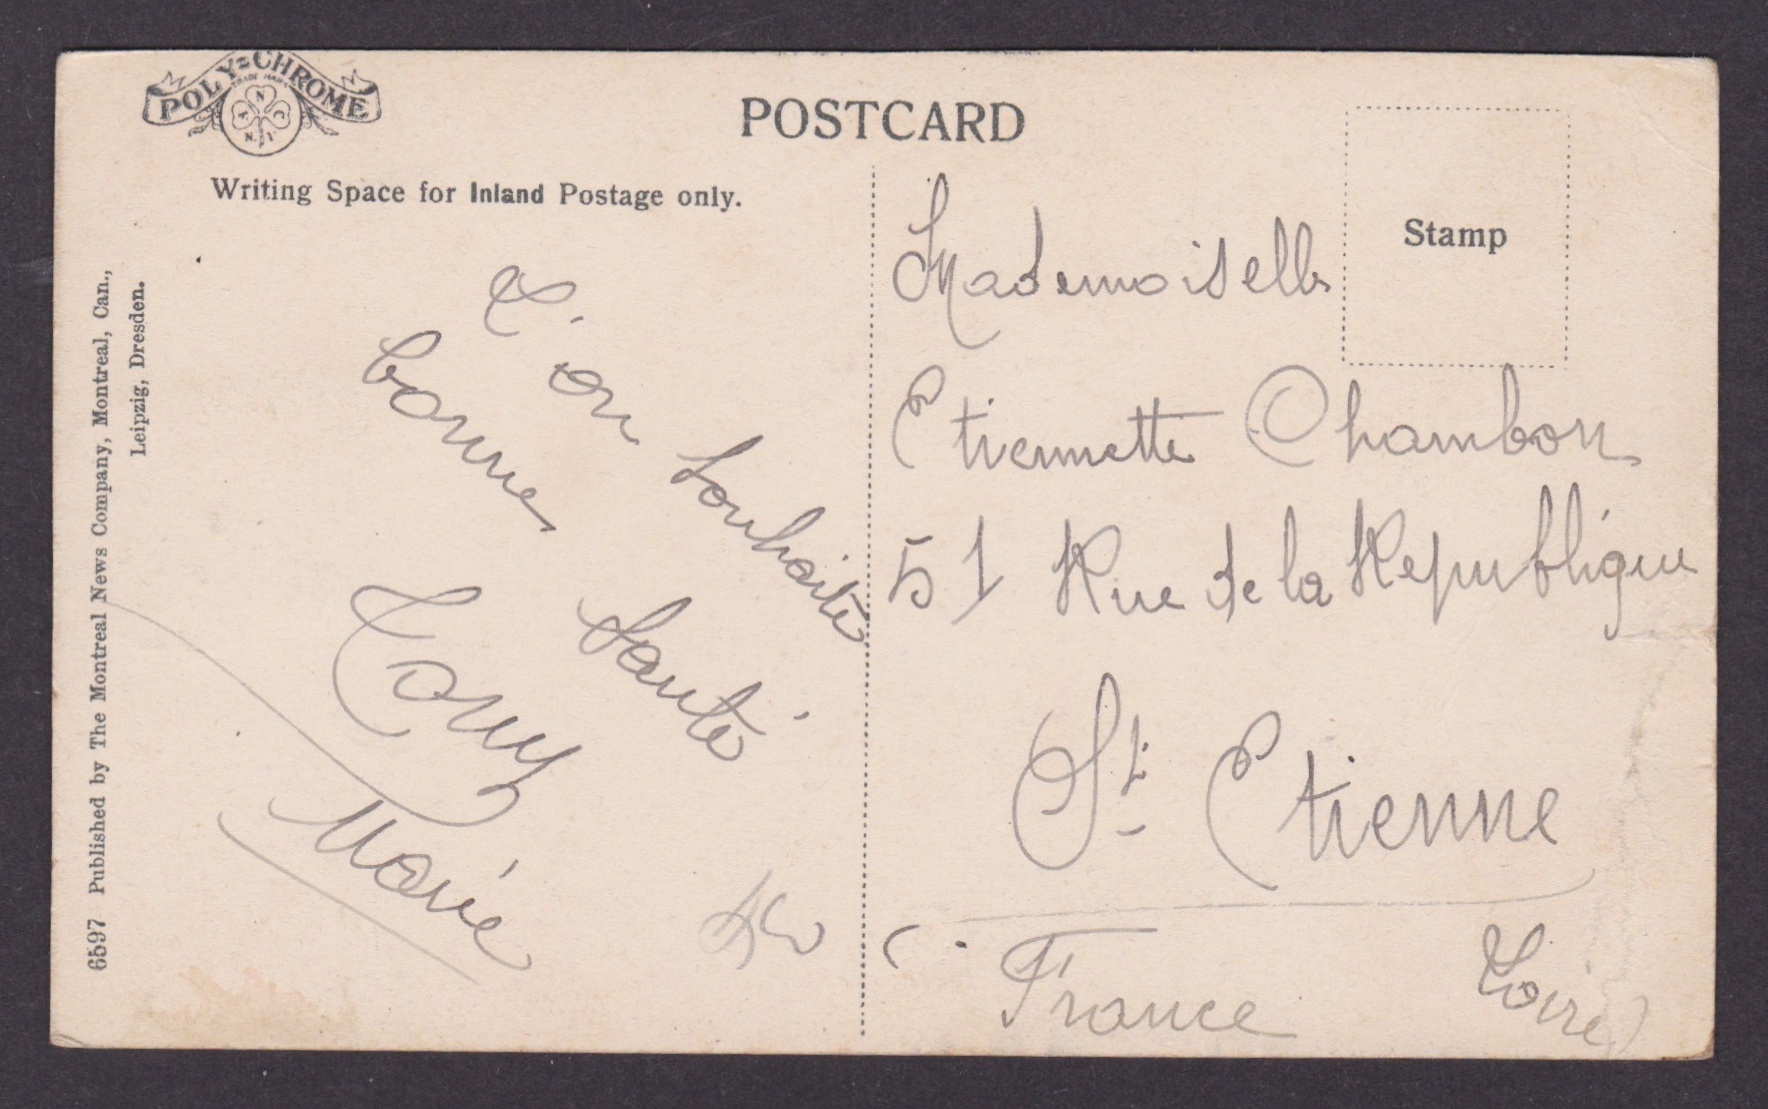 POLY=CHROME
TRADE MARK
A N C
N. Y.
POSTCARD
Writing Space for Inland Postage only.
Stamp
6597 Published by The Montreal News Company, Montreal, Can.,
Leipzig, Dresden.
L'on souhaite
bonne santé
Tony
Marie
Mademoiselle
Etiennette Chambon
51 Rue de la Republique
St Etienne
France (Loire)